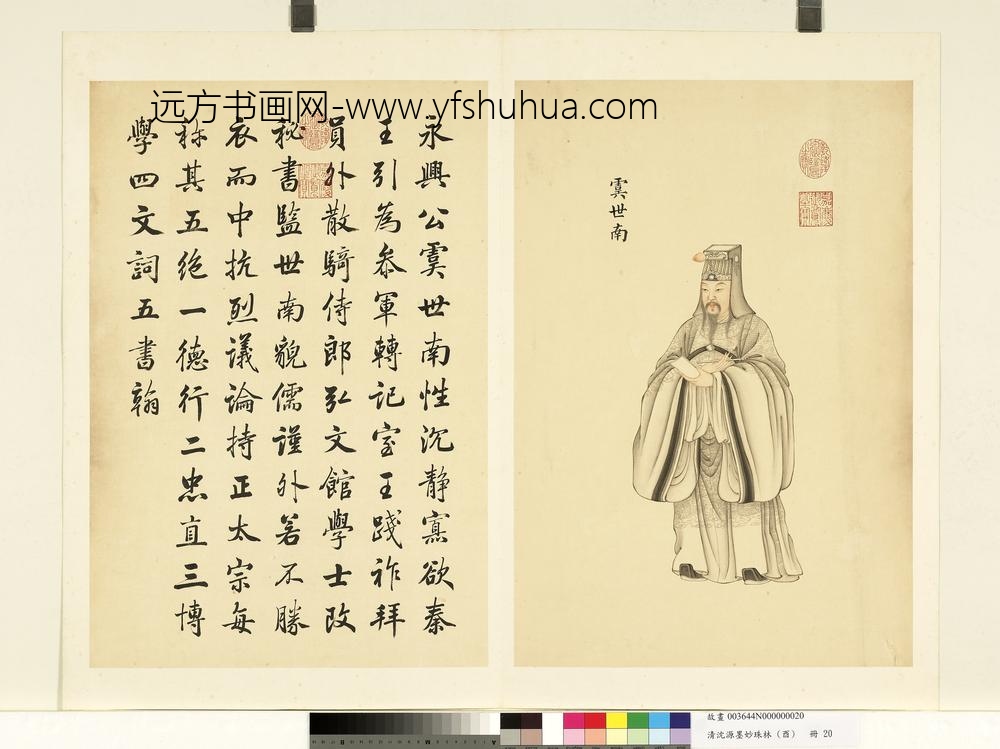 远方书画网-www.yfshuhua.com
虞世南
永興公虞世南性沉静寡欲秦
王引為叅軍轉記室王踐祚拜
員外散騎侍郎弘文館學士改
秘書監世南貌儒謹外若不勝
衣而中抗烈議論持正太宗每
称其五絶一德行二忠直三博
學四文詞五書翰
故畫 003644N000000020
清沈源墨妙珠林（酉） 冊 20